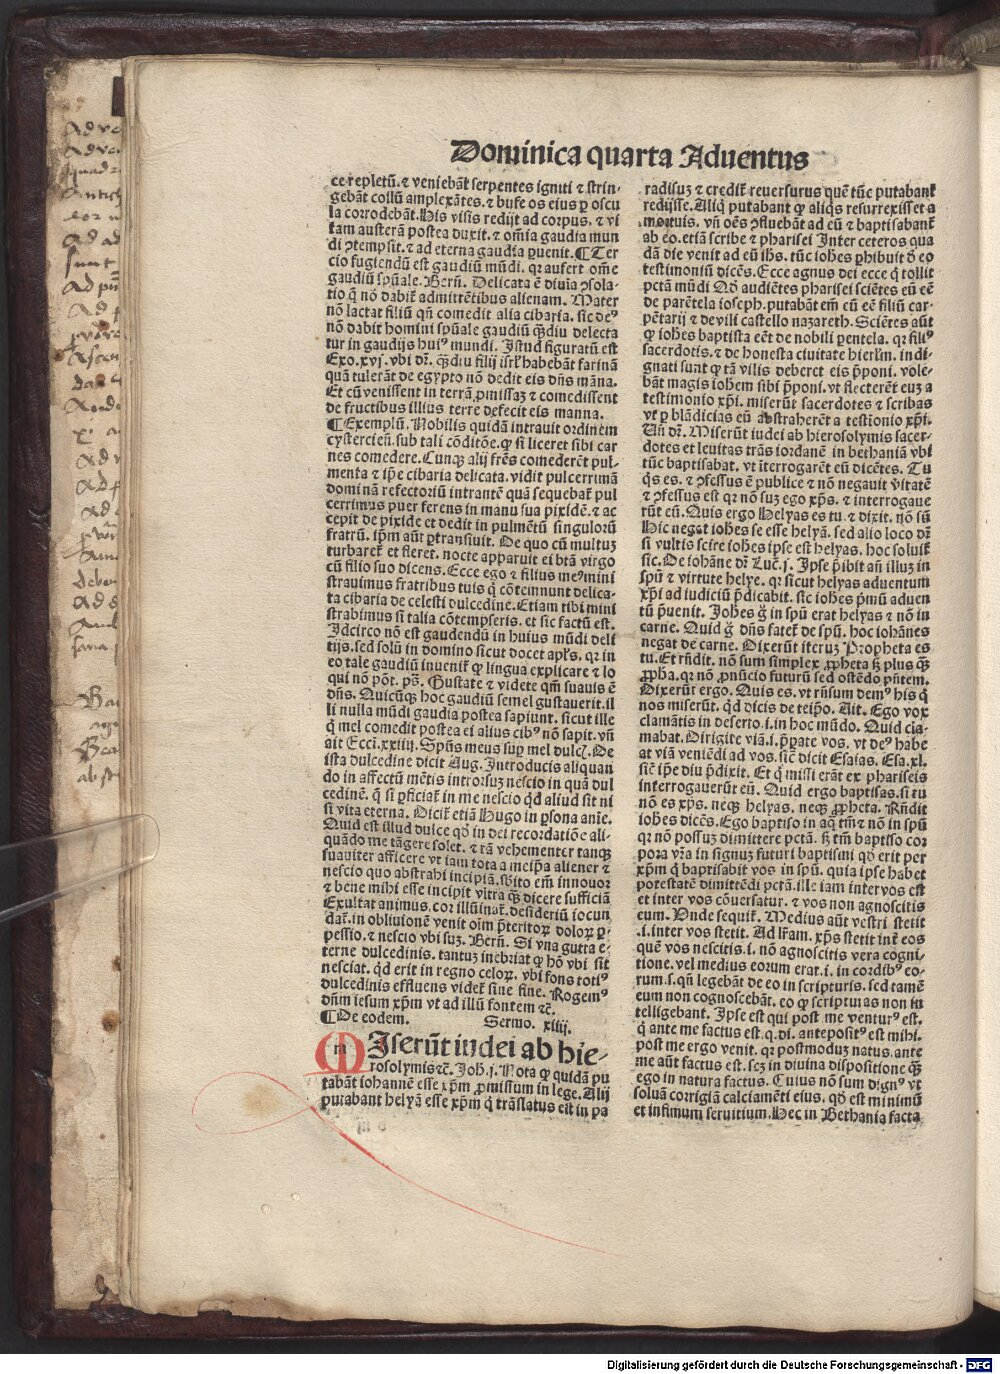 Dominica quarta Aduentus
ce repletū. ⁊ veniebāt serpentes igniti ⁊ strin-
gebāt collū amplexātes. ⁊ bufe os eius ꝑ oscu
la corrodebāt. His visis redijt ad corpus. ⁊ vi
tam austerā postea duxit. ⁊ om̄ia gaudia mun
di ꝯtempsit. ⁊ ad eterna gaudia ꝑuenit. ¶ Ter
cio fugiendū est gaudiū mūdi. qꝛ aufert om̄e
gaudiū spūale. Bern̄. Delicata ē diuīa ꝯsola-
tio q̄ nō dabit̄ admittētibus alienam. Mater
nō lactat filiū qn̄ comedit alia cibaria. sic deꝰ
nō dabit homini spūale gaudiū qᷓdiu delecta
tur in gaudijs huiꝰ mundi. Istud figuratū est
Exo. xvj. vbi dꝛ. qᷓdiu filij isrl̄ habebāt farinā
quā tulerāt de egypto nō dedit eis dn̄s māna.
Et cū venissent in terrā ꝓmissaꝫ ⁊ comedissent
de fructibus illius terre defecit eis manna.
¶ Exemplū. Nobilis quidā intrauit ordinem
cysterciēn. sub tali cōditōe. ꝙ n̄ liceret sibi car
nes comedere. Cunqꝫ alij fr̄es comederēt pul-
menta ⁊ ip̄e cibaria delicata. vidit pulcerrimā
dominā refectoriū intrantē quā sequebat̄ pul
cerrimus puer ferens in manu sua pixidē. ⁊ ac
cepit de pixide et dedit in pulmētū singulorū
fratrū. ip̄m aūt ꝑtransiuit. De quo cū multuꝫ
turbaret̄ et fleret. nocte apparuit ei btā virgo
cū filio suo dicens. Ecce ego ⁊ filius meꝰ mini
strauimus fratribus tuis q̄ cōtemnunt delica-
ta cibaria de celesti dulcedine. Etiam tibi mini
strabimus si talia cōtempseris. et sic factū est.
Idcirco nō est gaudendū in huius mūdi deli
tijs. sed solū in domino sicut docet apl̄s. qꝛ in
eo tale gaudiū inuenit̄ ꝙ lingua explicare ⁊ lo
qui nō pōt. ps̄. Gustate ⁊ videte qm̄ suauis ē
dn̄s. Quicūqꝫ hoc gaudiū semel gustauerit. il
li nulla mūdi gaudia postea sapiunt. sicut ille
q̄ mel comedit postea ei alius cibꝰ nō sapit. vn̄
ait Ecci. xxiiij. Spūs meus suꝑ mel dulcꝭ. De
ista dulcedine dicit Aug. Introducis aliquan
do in affectū mētis introꝛsuꝫ nescio in quā dul
cedinē. q̄ si ꝑficiat̄ in me nescio qd̄ aliud sit ni
si vita eterna. Dicit̄ etiā Hugo in ꝑsona anīe.
Quid est illud dulce qd̄ in dei recordatiōe ali-
quādo me tāgere solet. ⁊ tā vehementer tanqꝫ
suauiter afficere vt iam tota a meip̄a aliener ⁊
nescio quo abstrahi incipiā. sb̄ito em̄ innouor
⁊ bene mihi esse incipit vltra qᷓꝫ dicere sufficiā
Exultat animus. cor illūinat̄. desideriū iocun
dat̄. in obliuionē venit oīm p̄teritoꝝ doloꝝ ꝑ-
pessio. ⁊ nescio vbi suꝫ. Bern̄. Si vna gutta e-
terne dulcedinis. tantuꝫ inebriat ꝙ hō vbi sit
nesciat. qd̄ erit in regno celoꝝ. vbi fons totiꝰ
dulcedinis effluens videt̄ sine fine. Rogemꝰ
dn̄m iesum xp̄m vt ad illū fontem ⁊c̄.
¶ De eodem. Sermo. xiiij.
MIserūt iudei ab hie-
rosolymis ⁊c̄. Joh. j. Nota ꝙ quidā pu
tabāt iohannē esse xp̄m ꝓmissum in lege. Alij
putabant helyā esse xp̄m q̄ trāslatus est in pa
radisuꝫ ⁊ credit̄ reuersurus quē tūc putabant
redijsse. Aliq̄ putabant ꝙ aliq̄s resurrexisset a
mortuis. vn̄ oēs ꝯfluebāt ad eū ⁊ baptisabant̄
ab eo. etiā scribe ⁊ pharisei Inter ceteros qua
dā die venit ad eū ih̄s. tūc ioh̄es ꝑhibuit d̄ eo
testimoniū dicēs. Ecce agnus dei ecce q̄ tollit
pctā mūdi Qd̄ audiētes pharisei sciētes eū eē
de parētela ioseph. putabāt em̄ cū eē filiū car-
pētarij ⁊ de vili castello nazareth. Sciētes aūt
ꝙ ioh̄es baptista eēt de nobili ꝑentela. qꝛ filiꝰ
sacerdotis. ⁊ de honesta ciuitate hierl̄m. indi-
gnati sunt ꝙ tā vilis deberet eis p̄poni. vole-
bāt magis ioh̄em sibi p̄poni. vt flecterēt euꝫ a
testimonio xp̄i. miserūt sacerdotes ⁊ scribas
vt ꝑ blādicias eū abstraherēt a testīonio xp̄i.
Vn̄ dꝛ. Miserūt iudei ab hierosolymis sacer-
dotes et leuitas trās iordanē in bethaniā vbi
tūc baptisabat. vt īterrogarēt eū dicētes. Tu
q̄s es. ⁊ ꝯfessus ē publice ⁊ nō negauit v̄itatē
⁊ ꝯfessus est qꝛ nō suꝫ ego xp̄s. ⁊ interrogaue
rūt eū. Quis ergo Helyas es tu. ⁊ dixit. nō sū
Hic negat ioh̄es se esse helyā. sed alio loco dꝛ
si vultis scire ioh̄es ipse est helyas. hoc soluit̄
sic. De iohāne dꝛ Luc̄. j. Ipse p̄ibit an̄ illuꝫ in
spū ⁊ virtute helye. qꝛ sicut helyas aduentum
xp̄i ad iudiciū p̄dicabit. sic ioh̄es pͥmū aduen
tū p̄uenit. Joh̄es g̊ in spū erat helyas ⁊ nō in
carne. Quid g̊ dn̄s fatet̄ de spū. hoc iohānes
negat de carne. Dixerūt iteruꝫ Propheta es
tu. Et rn̄dit. nō sum simplex ꝓpheta sꝫ plus qᷓꝫ
ꝓpha. qꝛ nō ꝓnūcio futurū sed ostēdo pn̄tem.
Dixerūt ergo. Quis es. vt rn̄sum demꝰ his q̄
nos miserūt. qd̄ dicis de teip̄o. Ait. Ego vox
clamātis in deserto. i. in hoc mūdo. Quid cla-
mabat. Dirigite viā. i. p̄parate vos. vt deꝰ habe
at viā veniēdi ad vos. sic̄ dicit Esaias. Esa. xl.
sic̄ ip̄e diu p̄dixit. Et q̄ missi erāt ex phariseis
interrogauerūt eū. Quid ergo baptisas. si tu
nō es xp̄s. neqꝫ helyas. neqꝫ ꝓpheta. Rn̄dit
ioh̄es dicēs. Ego baptiso in aq̄ tm̄ ⁊ nō in spū
qꝛ nō possuꝫ dimittere pctā. sꝫ tm̄ baptiso cor
pora vr̄a in signuꝫ futuri baptismi qd̄ erit per
xp̄m q̄ baptisabit vos in spū. quia ipse habet
potestatē dimittēdi pctā. ille iam inter vos est
et inter vos cōuersatur. ⁊ vos non agnoscitis
eum. Vnde sequit̄. Medius aūt vestri stetit
.i. inter vos stetit. Ad lr̄am. xp̄s stetit int̄ eos
quē vos nescitis. i. nō agnoscitis vera cogni-
tione. vel medius eorum erat. i. in cordibꝰ eo-
rum. s. qn̄ legebāt de eo in scripturis. sed tamē
eum non cognoscebāt. eo ꝙ scripturas non in
telligebant. Ipse est qui post me venturꝰ est.
q̄ ante me factus est. q. di. ante positꝰ est mihi.
post me ergo venit. qꝛ postmoduꝫ natus. ante
me aūt factus est. scꝫ in diuina dispositione qᷓꝫ
ego in natura factus. Cuius nō sum dignꝰ vt
soluā corrigiā calciamēti eius. qd̄ est minimū
et infimum seruitium. Hec in Bethania facta
Digitalisierung gefördert durch die Deutsche Forschungsgemeinschaft - DFG